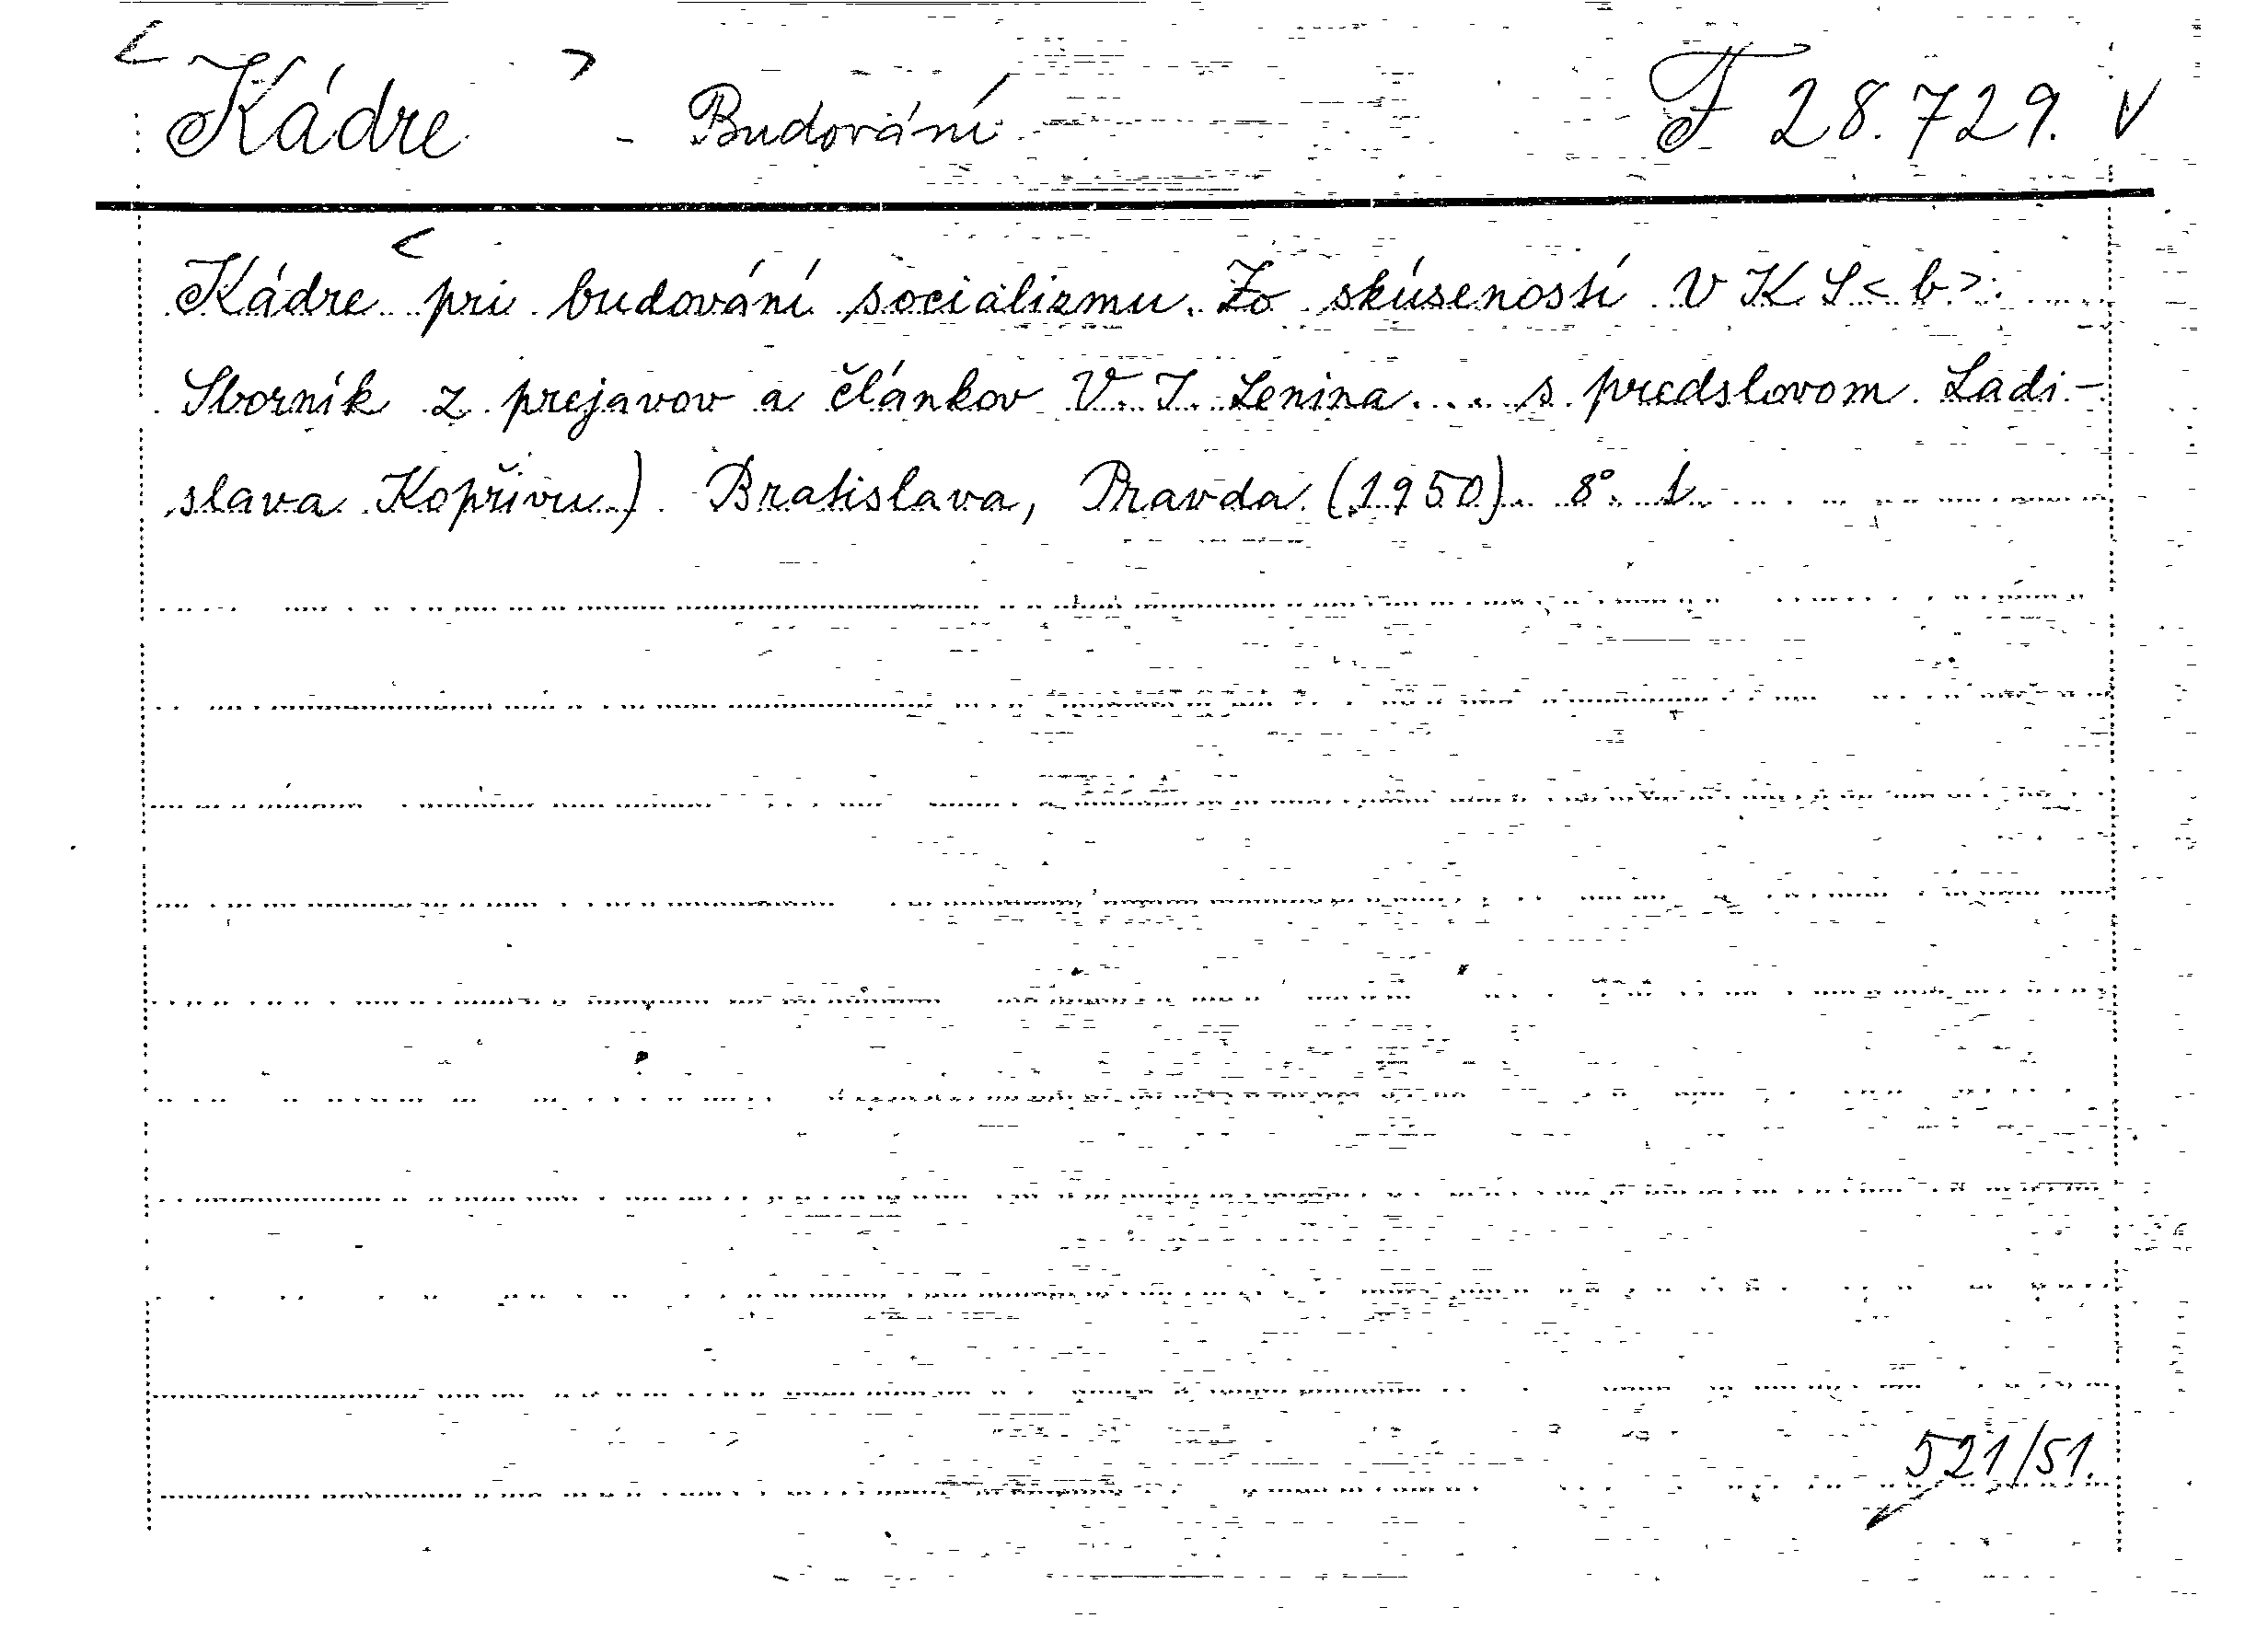 < Kádre > - Budování F 28.729. V
Kádre < pri budování socializmu. Zo skúseností VKS<b>.
Sborník z prejavov a článkov V. I. Lenina.... s predslovom Ladi-
slava Kopřivu.) Bratislava, Pravda (1950). 8°. 1
521/51.